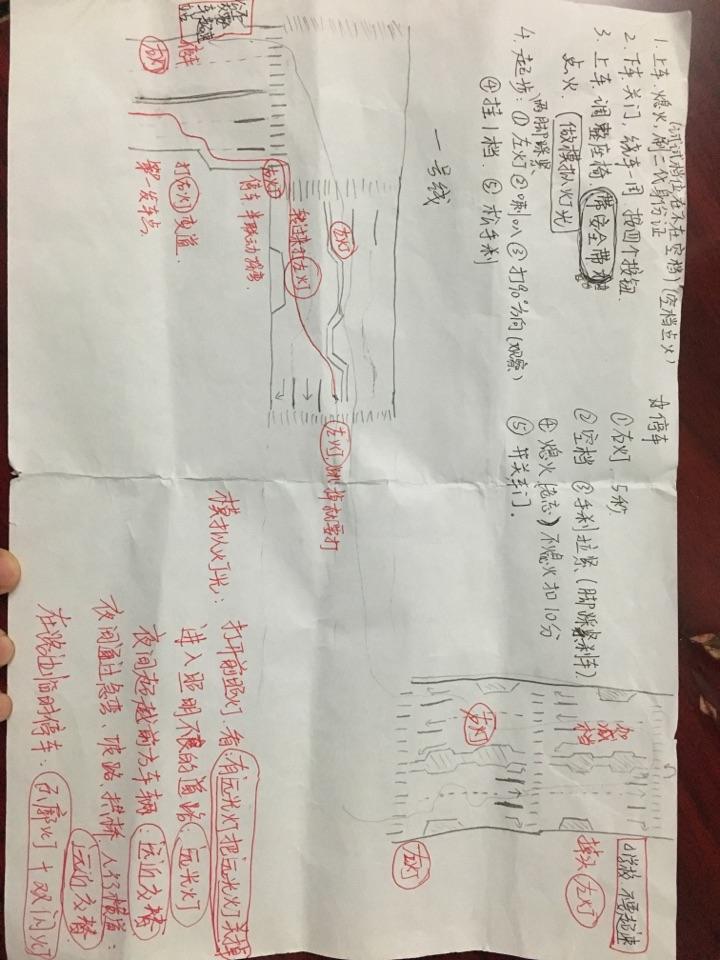 1. 上车. 熄火, 刷二代身份证
(试试档位在不在空档)(空档点火)
2. 下车.关门, 绕车一周 按四个按钮.
3. 上车. 调整座椅 带安全带
点火. 做模拟灯光
4. 起步: ①左灯 ②喇叭 ③打90°方向(观察)
两脚踩紧
④挂1档. ⑤松手刹
一号线
停车
①右灯. 5秒
②空档 ③手刹拉紧(脚踩紧刹车)
④熄火 不熄火扣10分
⑤开关车门.
停车
左灯
打右灯变道.
第一发车点.
右灯
停车.半联动
打左灯
左灯
左灯 就要打
加减档
左灯
左灯
学校 不要超速
掉头(左灯)
模拟灯光:
打开前照灯 看:有远光灯把远光灯关掉
进入照明不良的道路: 远光灯
夜间超越前方车辆: 远近交替
夜间通过急弯、坡路、拱桥、人行横道:
远近交替
在路边临时停车: 示廓灯+双闪灯